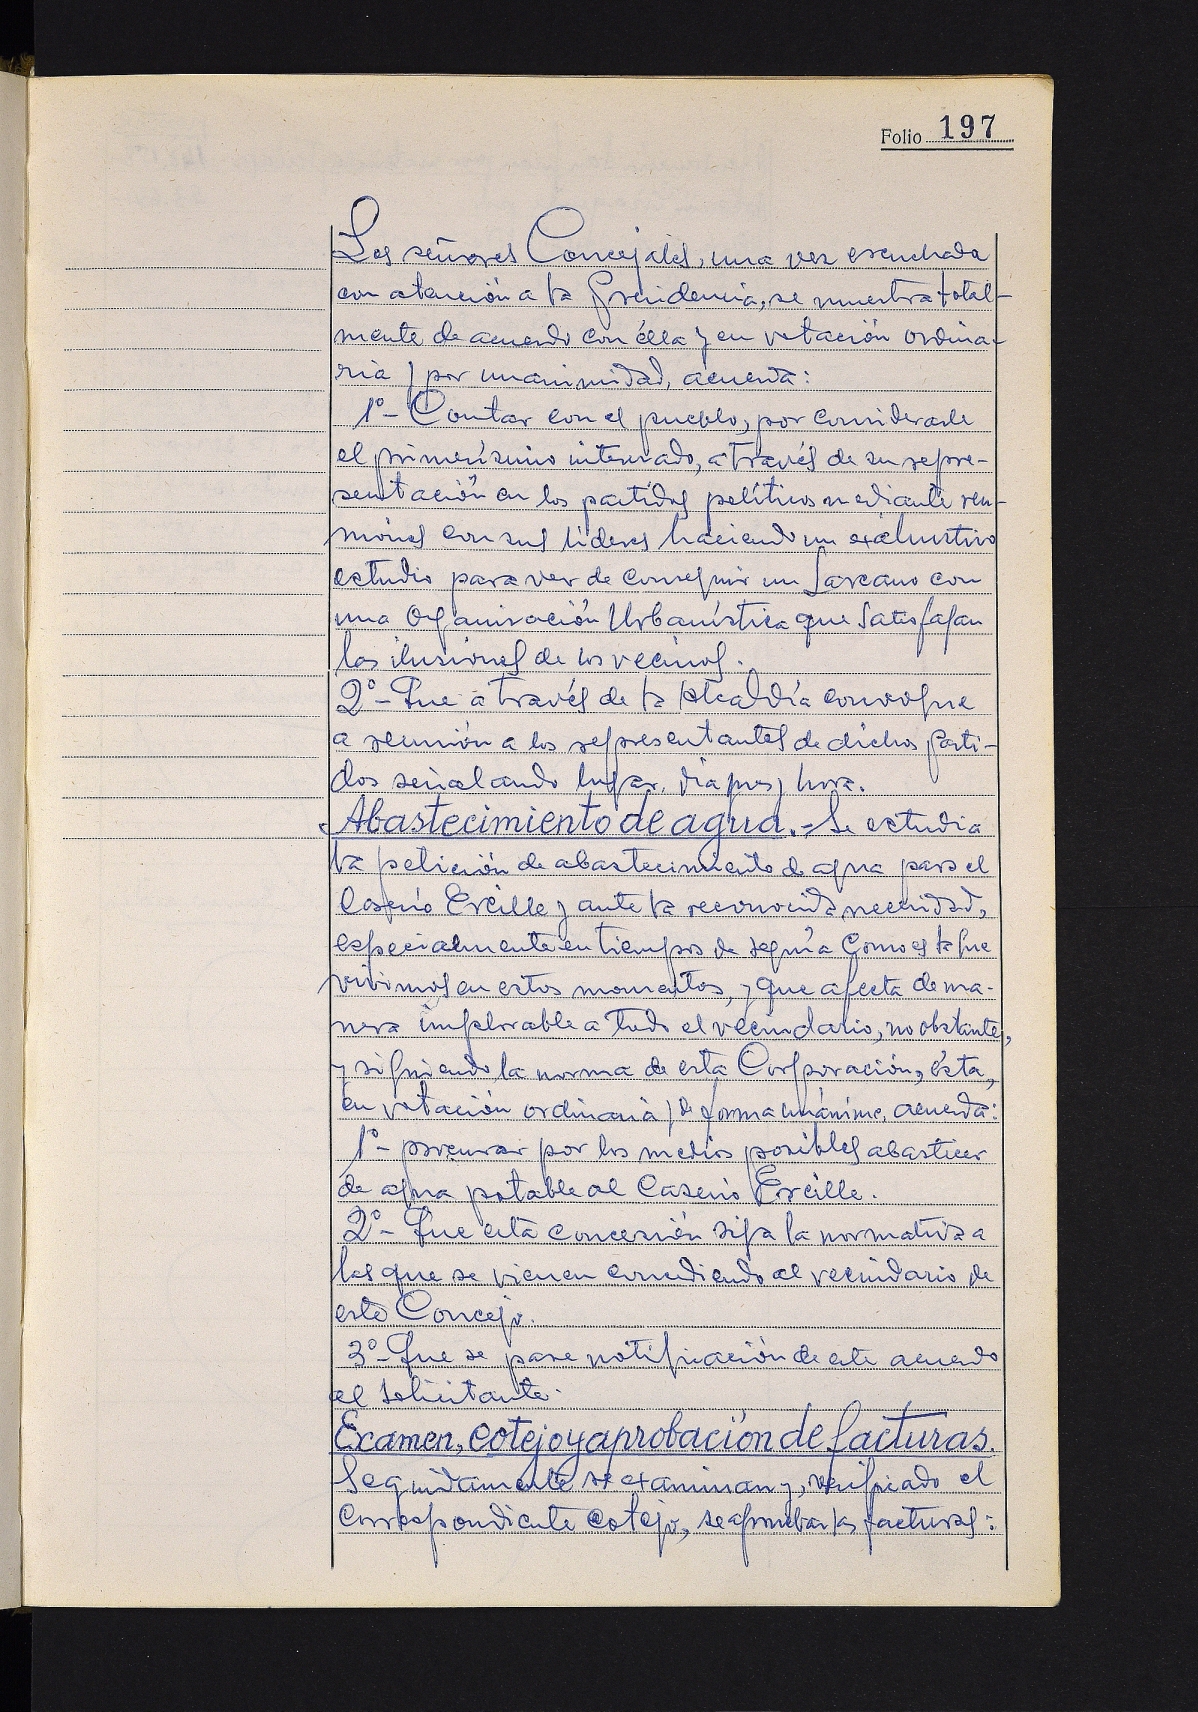 Folio 197
Los señores Concejales, una vez escuchada
con atención a la Presidencia, se muestra total-
mente de acuerdo con élla y en votación ordina-
ria y por unanimidad, acuerda:
1º- Contar con el pueblo, por considerarle
el primerísimo interesado, a través de su repre-
sentación en los partidos políticos mediante reu-
niónes con sus líderes haciendo un exahustivo
estudio para ver de conseguir un Lazcano con
una Organización Urbanística que satisfagan
las ilusiones de los vecinos.
2º- Que a través de la Alcaldía convoque
a reunión a los representantes de dichos parti-
dos señalando lugar, día, mes y hora.
Abastecimiento de agua.- Se estudia
la petición de abastecimiento de agua para el
Caserío Ercille y ante la reconocida necesidad,
especialmente en tiempos de sequía como es la que
vivimos en estos momentos, y que afecta de ma-
nera implorable a todo el vecindario, no obstante,
y siguiendo la norma de esta Corporación, ésta,
en votación ordinaria y de forma unánime, acuerda:
1º- procurar por los medios posibles abastecer
de agua potable al Caserío Ercille.
2º- Que esta concesión siga la normativa a
las que se vienen concediendo al vecindario de
este Concejo.
3º- Que se pase notificación de este acuerdo
al solicitante.
Examen, cotejo y aprobación de facturas.
Seguidamente se examinan y, verificado el
correspondiente cotejo, se aprueban las facturas: